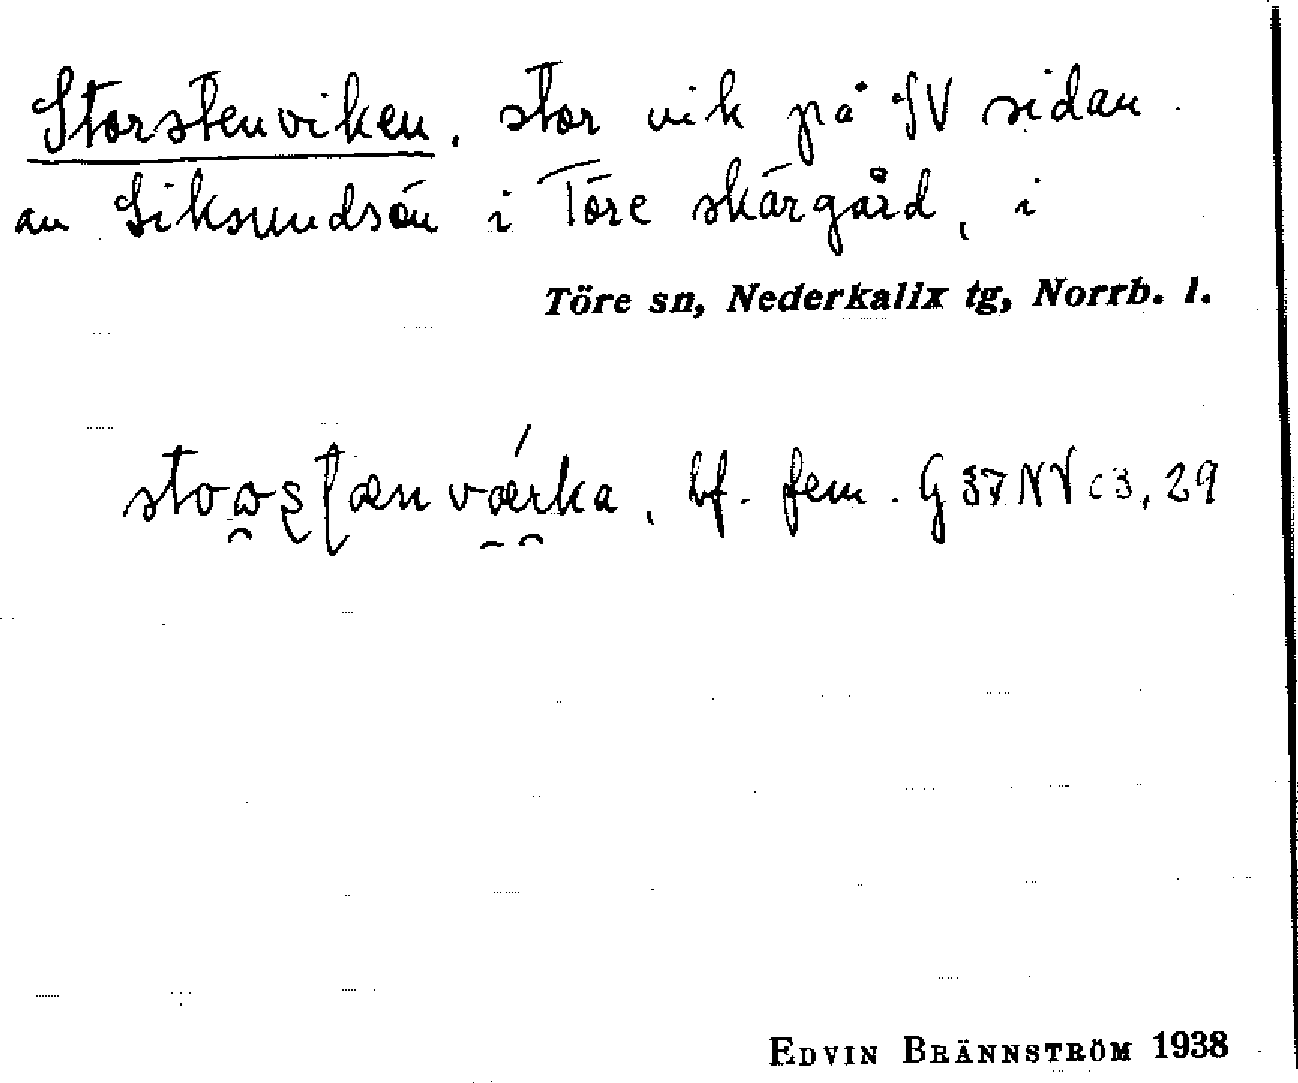 Storstenviken, stor vik på SV sidan
av Siksundsön i Töre skärgård, i
Töre sn, Nederkalix tg, Norrb. l.
bf. fem. G 37 NV c 3, 29
EDVIN BRÄNNSTRÖM 1938